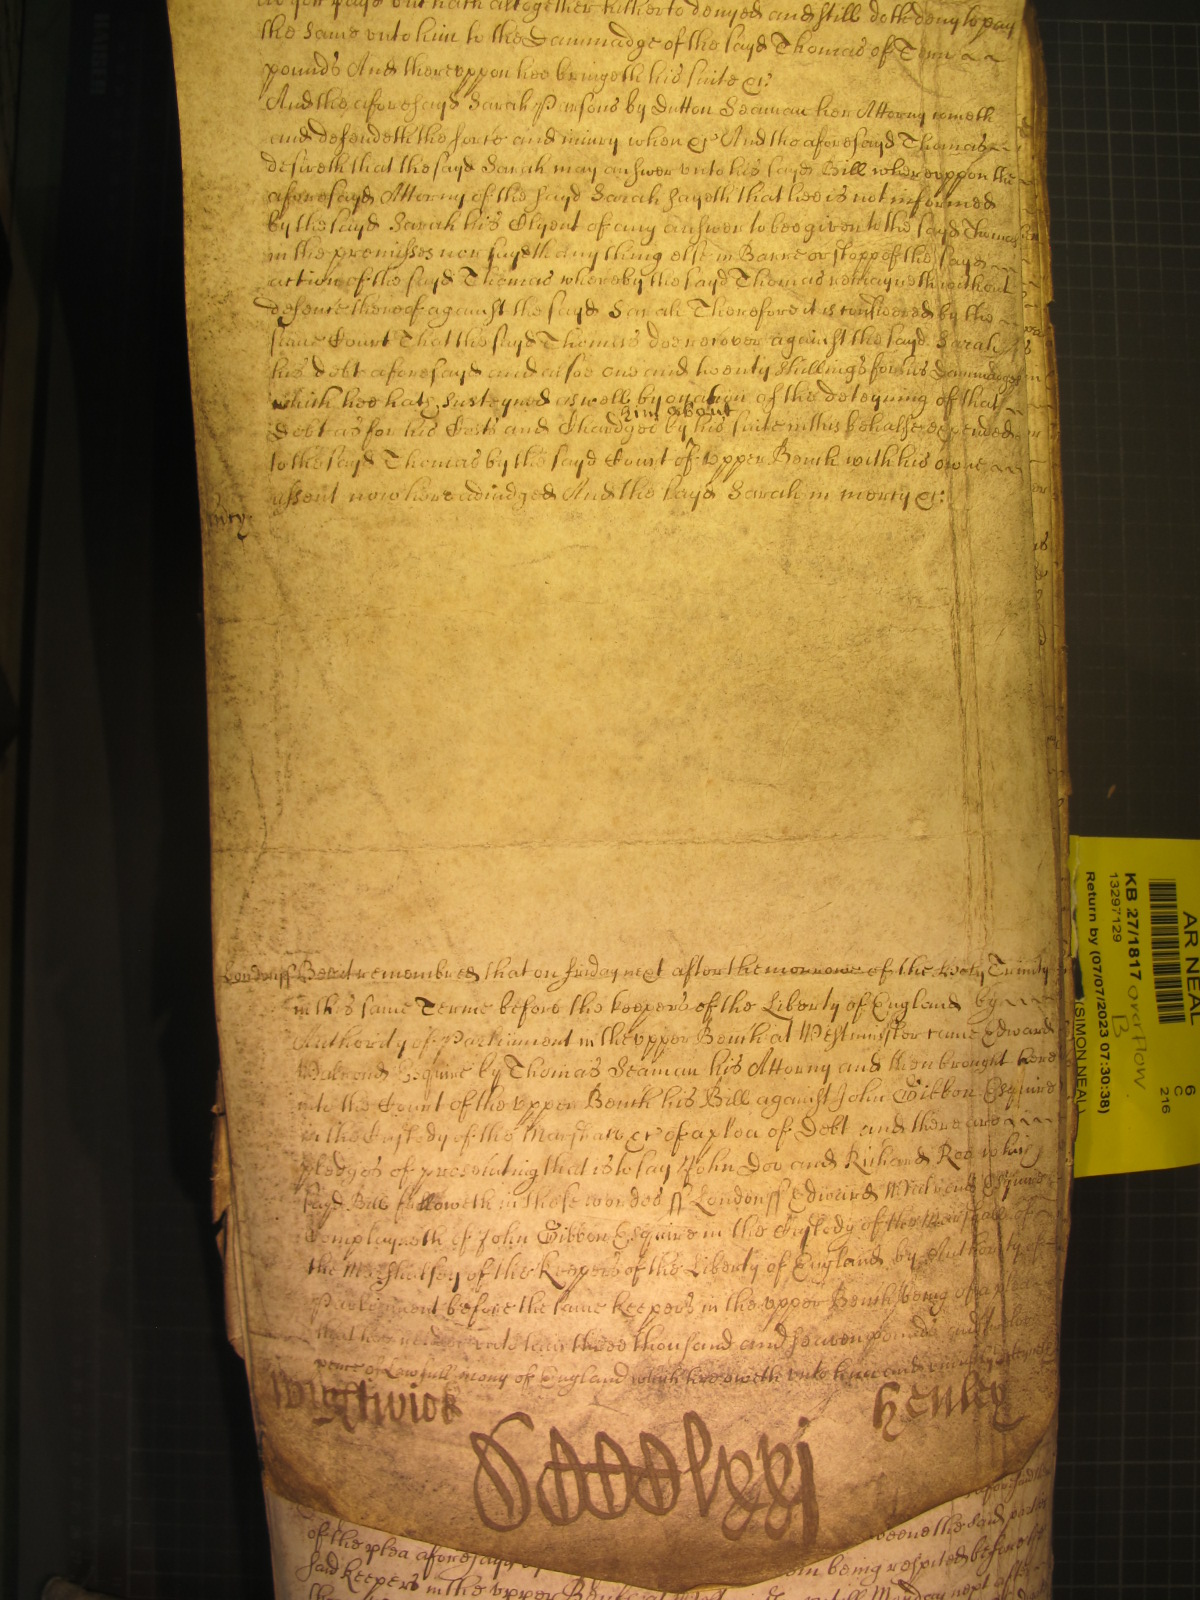 pays but hath altogether hitherto denyed and still doth deny to pay
the same unto him to the Dammadge of the sayd Thomas of Tenn
pounds And thereuppon hee bringeth his suite &c:
And the aforesayd Sarah Parsons by Dutton Seaman her Attorny cometh
and defendeth the force and iniury when &c And the aforesayd Thomas
desireth that the sayd Sarah may answer unto his sayd Bill whereuppon the
aforesayd Attorny of the sayd Sarah sayeth that hee is not informed
by the sayd Sarah his Clyent of any answer to bee given to the sayd Thomas
in the premisses nor sayeth any thing else in Barre or stopp of the sayd
action of the sayd Thomas whereby the sayd Thomas remayneth without
defence thereof against the sayd Sarah Therefore it is considered by the
same Court That the sayd Thomas doe recover against the sayd Sarah
his debt aforesayd and alsoe one and twenty shillings for his Dammadges
which hee hath susteyned aswell by occasion of the deteyning of that
him about
Debt as for his Costs and Chardges by his suite in this behalfe expended
to the sayd Thomas by the sayd Court of Upper Bench with his owne
assent now here adiudged And the sayd Sarah in mercy &c:
mcy
London ss Bee it remembred that on friday next after the morrowe of the Holy Trinity
in this same Terme before the keepers of the Liberty of England by
Authority of Parliament in the upper Bench at Westminster came Edward
Esquire by Thomas Seaman his Attorny and then brought here
into the Court of the upper Bench his Bill against John Gibbon Esquire
in the Custody of the Marshall &c of a plea of Debt and there are
pledges of prosecuting that is to say John Doo and Richard Roo which
sayd Bill followeth in these wordes ss London ss Edward Esquire
Complayneth of John Gibbon Esquire in the Custody of the Marshall of
the Marshalsey of the Keepers of the Liberty of England by Authority of
Parliament before the same keepers in the upper Bench being of a plea
that hee render unto him three thousand and seaven pounds and
pence of Lawfull mony of England which hee oweth unto him and uniustly deteyneth
Henley
of the plea aforesayd
said keepers in the upper Bench
being respited before the
Monday next after
KB 27/1817 overflow
B
13297129
Return by (07/07/2023 07:30:38)
(SIMON NEAL)
AR NEAL
6
C
216